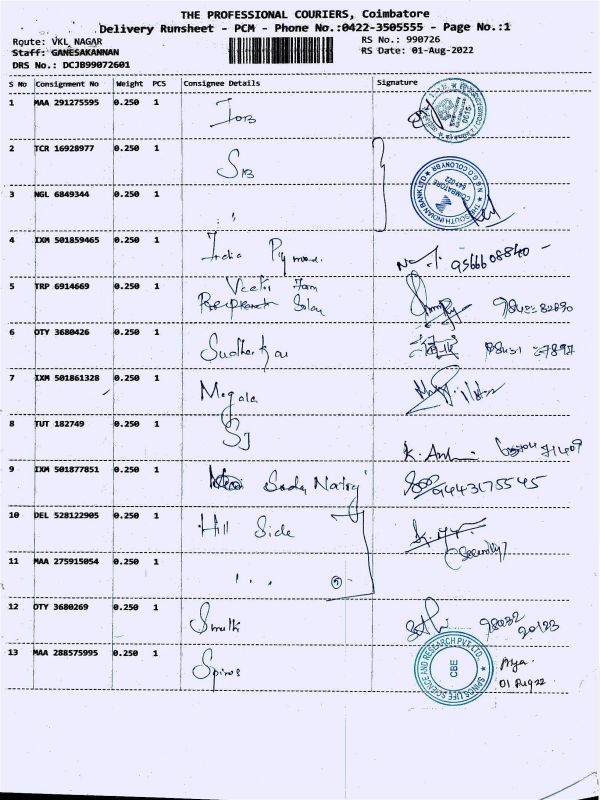 THE PROFESSIONAL COURIERS, Coimbatore
Delivery Runsheet - PCM - Phone No.:0422-3505555 - Page No.:1
Route: VKL NAGAR RS No.: 990726
Staff: GANESAKANNAN RS Date: 01-Aug-2022
DRS No.: DCJB99072601
S No Consignment No Weight PCS Consignee Details Signature
1 MAA 291275595 0.250 1 IOB
2 TCR 16928977 0.250 1 SIB
3 NGL 6849344 0.250 1
THE SOUTH INDIAN BANK LTD
COIMBATORE
4 IXM 501859465 0.250 1 India 9566608840
5 TRP 6914669 0.250 1
6 OTY 3680426 0.250 1 Sudhakar
7 IXM 501861328 0.250 1 Megala
8 TUT 182749 0.250 1 SJ
9 IXM 501877851 0.250 1 9443175545
10 DEL 528122905 0.250 1 Hill Side
(Security)
11 MAA 275915054 0.250 1 " " 2
12 OTY 3680269 0.250 1 Smuthi
13 MAA 288575995 0.250 1 Spinos
SPINOS LIFE SCIENCE AND RESEARCH PVT LTD.
CBE
Priya.
01 Aug 22